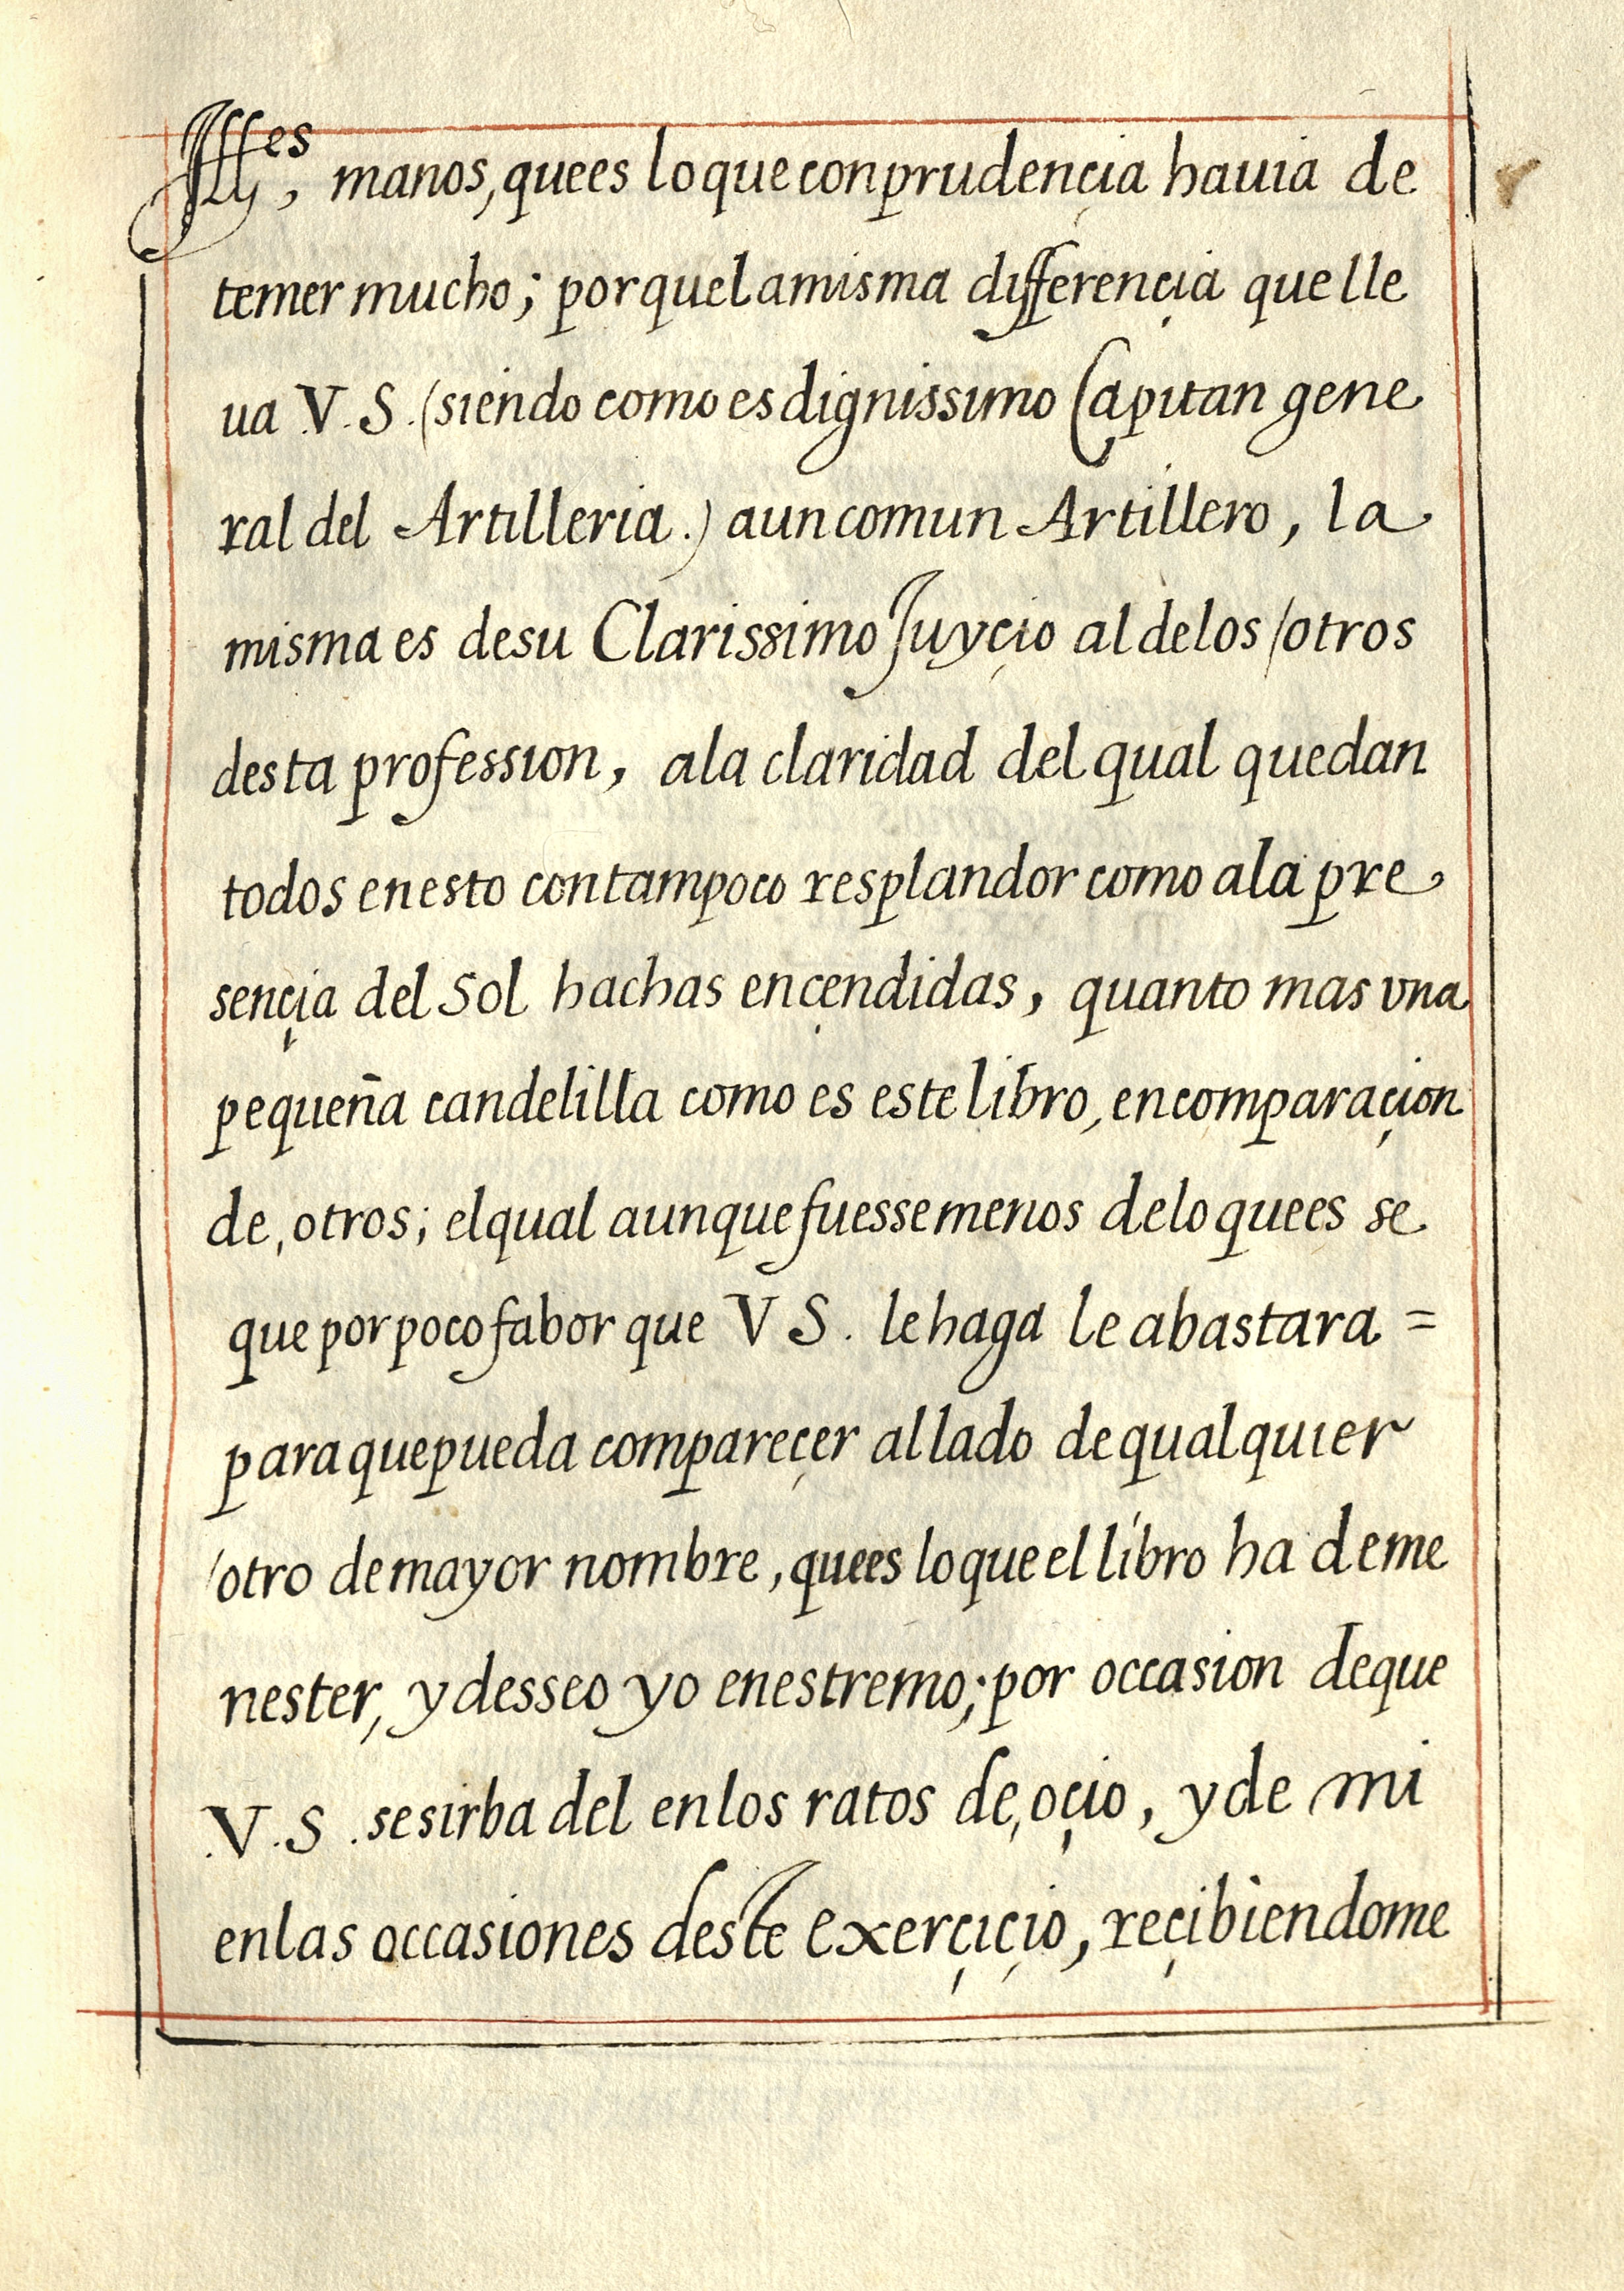 Illes, manos, quees lo que con prudençia hauia de
temer mucho; porque la misma differençia que lle
ua .V.S. (siendo como es dignissimo Capitan gene
ral del Artilleria.) a un comun Artillero, la
misma es de su Clarissimo Juyçio al de los /otros
desta profession, a la claridad del qual quedan
todos en esto con tam poco resplandor como a la pre
sençia del Sol hachas ençendidas, quanto mas vna
pequeña candelilla como es este libro, en comparaçion
de, otros; el qual aunque fuesse menos de lo quees se
que por poco fabor que V S. le haga le abastara =
para que pueda compareçer al lado de qualquier
/otro de mayor nombre, quees lo que el libro ha de me
nester, y desseo yo en estremo; por occasion de que
.V.S. se sirba del en los ratos de, oçio, y de mi
en las occasiones deste exerçiçio, reçibiendome